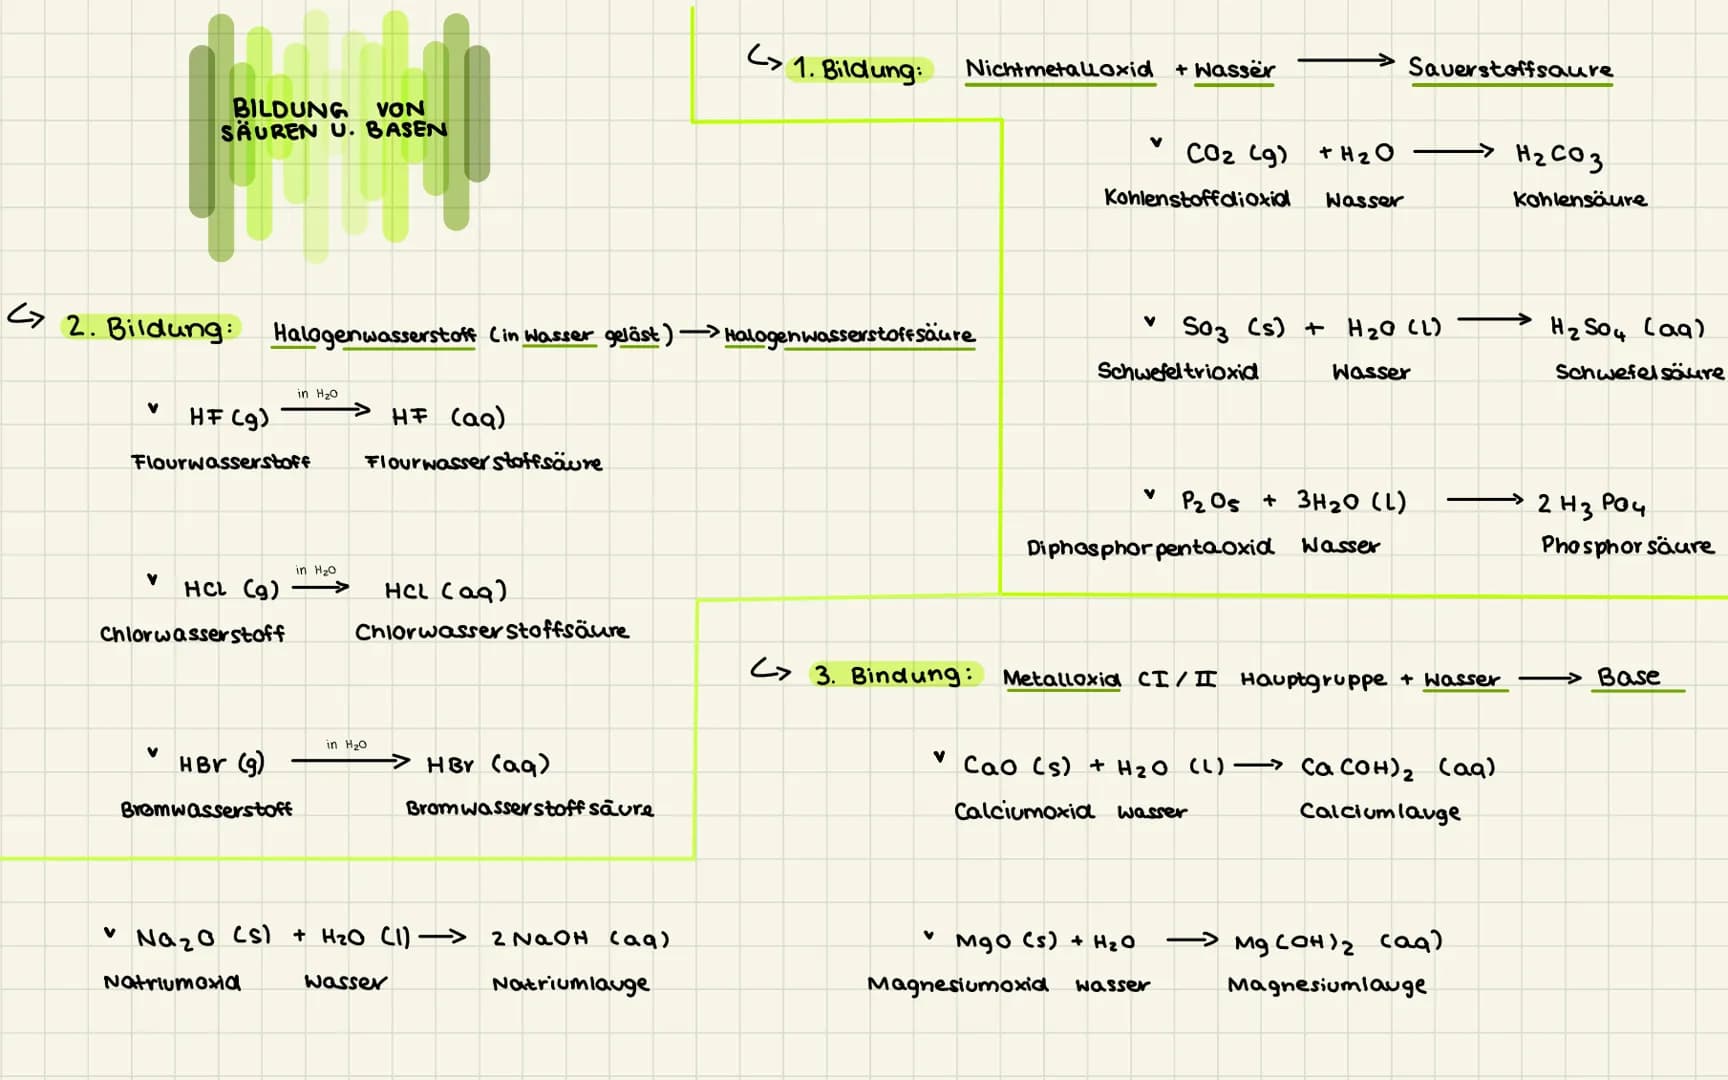 BILDUNG VON
SÄUREN U. BASEN
1. Bildung: Nichtmetalloxid + Wasser → Sauerstoffsaure
CO2 (g) + H2O → H2CO3
Kohlenstoffdioxid Wasser Kohlensäure
SO3 (s) + H2O (L) → H2SO4 (aq)
Schwefeltrioxid Wasser Schwefelsäure
P2O5 + 3H2O (L) → 2 H3PO4
Diphosphorpentaoxid Wasser Phosphorsäure
2. Bildung: Halogenwasserstoff (in Wasser gelöst) → Halogenwasserstoffsäure
in H2O
HF (g) → HF (aq)
Flourwasserstoff Flourwasserstoffsäure
in H2O
HCL (g) → HCL (aq)
Chlorwasserstoff Chlorwasserstoffsäure
in H2O
HBr (g) → HBr (aq)
Bromwasserstoff Bromwasserstoffsäure
3. Bindung: Metalloxid (I/II Hauptgruppe + Wasser → Base
CaO (s) + H2O (L) → Ca(OH)2 (aq)
Calciumoxid Wasser Calciumlauge
Na2O (s) + H2O (l) → 2 NaOH (aq)
Natriumoxid Wasser Natriumlauge
MgO (s) + H2O → Mg(OH)2 (aq)
Magnesiumoxid Wasser Magnesiumlauge